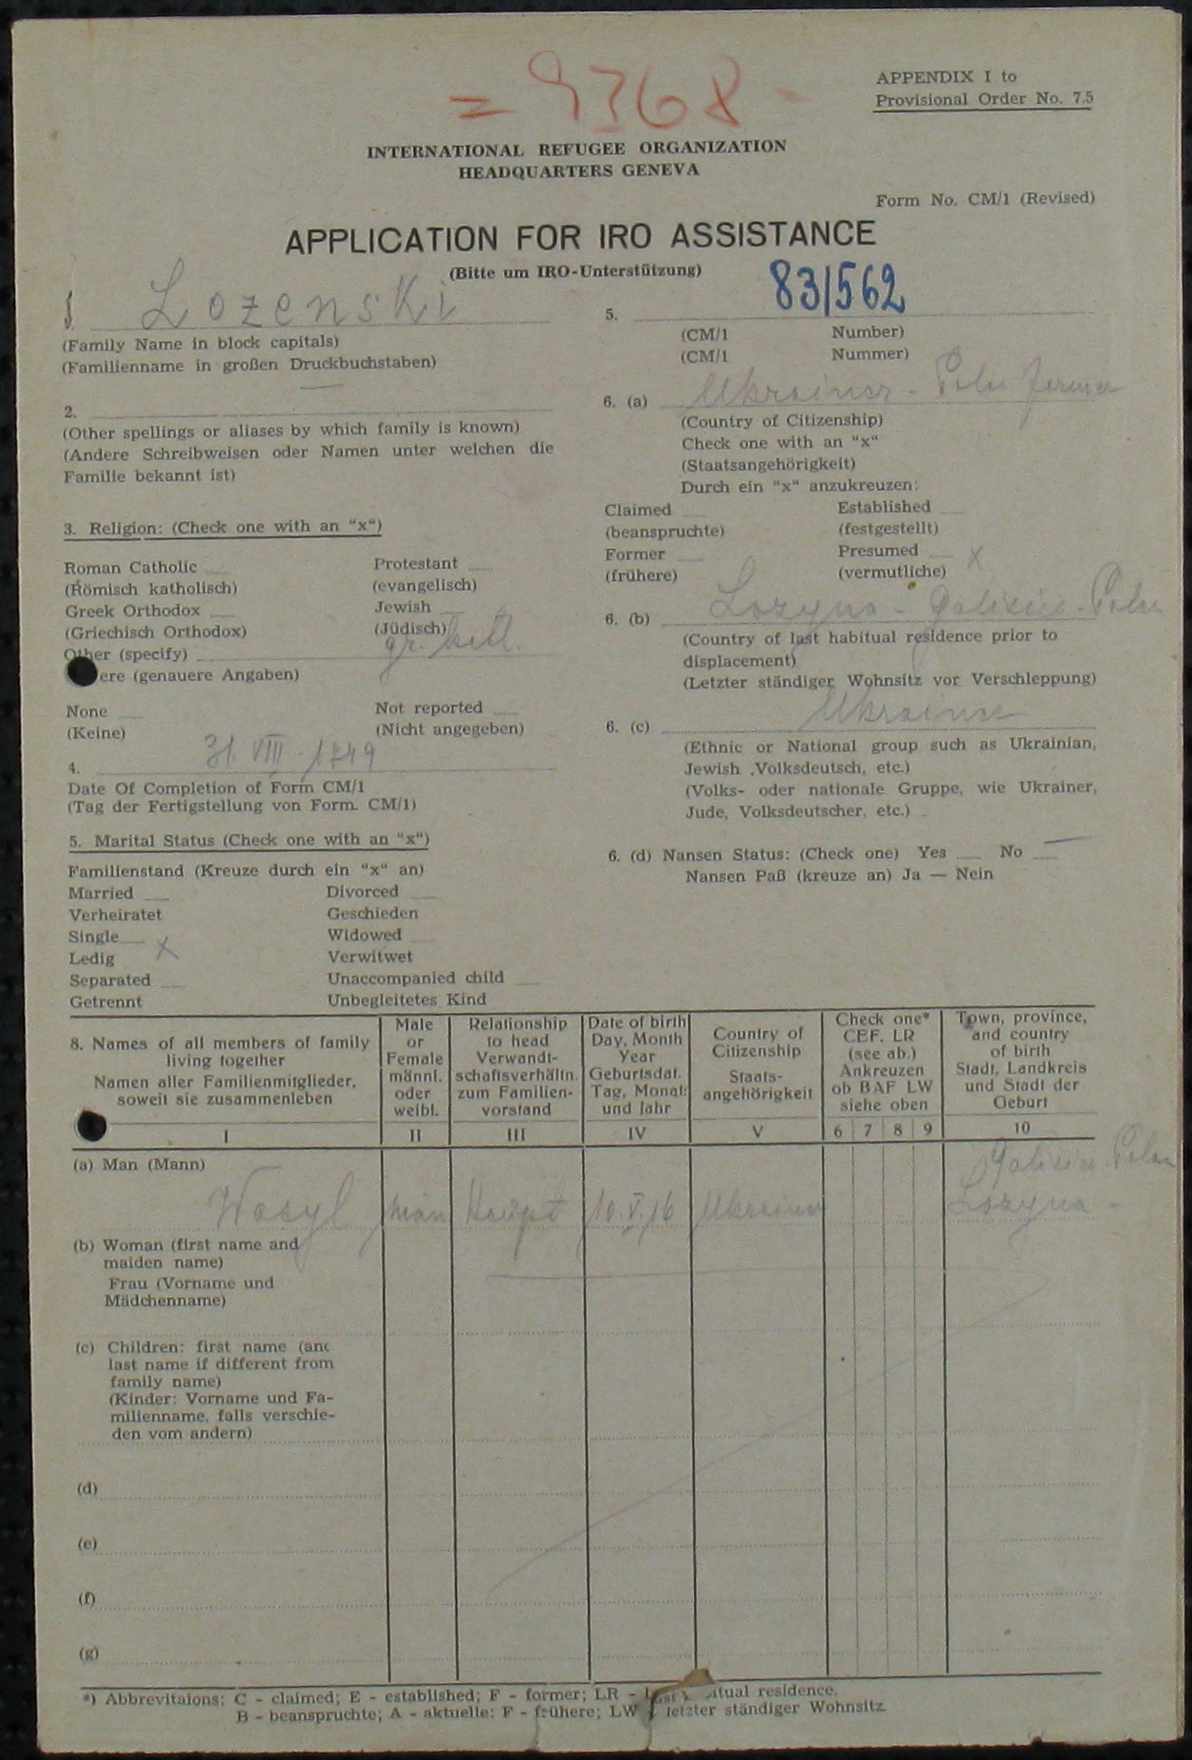 = 9368 -
APPENDIX I to
Provisional Order No. 7.5
INTERNATIONAL REFUGEE ORGANIZATION
HEADQUARTERS GENEVA
Form No. CM/1 (Revised)
APPLICATION FOR IRO ASSISTANCE
(Bitte um IRO-Unterstützung)
Lozenski
(Family Name in block capitals)
(Familienname in großen Druckbuchstaben)
2.
(Other spellings or aliases by which family is known)
(Andere Schreibweisen oder Namen unter welchen die
Familie bekannt ist)
3. Religion: (Check one with an "x")
Roman Catholic
(Römisch katholisch)
Greek Orthodox
(Griechisch Orthodox)
Other (specify) gr. kath.
ere (genauere Angaben)
Protestant
(evangelisch)
Jewish
(Jüdisch)
None
(Keine)
Not reported
(Nicht angegeben)
4. 31. VIII. 1949
Date Of Completion of Form CM/1
(Tag der Fertigstellung von Form. CM/1)
5. Marital Status (Check one with an "x")
Familienstand (Kreuze durch ein "x" an)
Married
Verheiratet
Single x
Ledig
Separated
Getrennt
Divorced
Geschieden
Widowed
Verwitwet
Unaccompanied child
Unbegleitetes Kind
5. 831562
(CM/1 Number)
(CM/1 Nummer)
6. (a) Ukrainer - Polen
(Country of Citizenship)
Check one with an "x"
(Staatsangehörigkeit)
Durch ein "x" anzukreuzen:
Claimed
(beanspruchte)
Former
(frühere)
Established
(festgestellt)
Presumed x
(vermutliche)
6. (b) Lozyna - Galizien - Polen
(Country of last habitual residence prior to
displacement)
(Letzter ständiger Wohnsitz vor Verschleppung)
6. (c) Ukrainer
(Ethnic or National group such as Ukrainian,
Jewish ,Volksdeutsch, etc.)
(Volks- oder nationale Gruppe, wie Ukrainer,
Jude, Volksdeutscher, etc.)
6. (d) Nansen Status: (Check one) Yes No
Nansen Paß (kreuze an) Ja — Nein
8. Names of all members of family
living together
Namen aller Familienmitglieder,
soweit sie zusammenleben
I
Male
or
Female
männl.
oder
weibl.
II
Relationship
to head
Verwandt-
schaftsverhältn.
zum Familien-
vorstand
III
Date of birth
Day, Month
Year
Geburtsdat.
Tag, Monat:
und Jahr
IV
Country of
Citizenship
Staats-
angehörigkeit
V
Check one*
CEF. LR
(see ab.)
Ankreuzen
ob BAF LW
siehe oben
6 7 8 9
Town, province,
and country
of birth
Stadt, Landkreis
und Stadt der
Geburt
10
(a) Man (Mann)
Galizien Polen
Wasyl män Haupt 10.V.16 Ukrainer Lozyna -
(b) Woman (first name and
maiden name)
Frau (Vorname und
Mädchenname)
(c) Children: first name (and
last name if different from
family name)
(Kinder: Vorname und Fa-
milienname, falls verschie-
den vom andern)
(d)
(e)
(f)
(g)
*) Abbrevitaions: C - claimed; E - established; F - former; LR - itual residence.
B - beanspruchte; A - aktuelle: F - frühere; LW letzter ständiger Wohnsitz